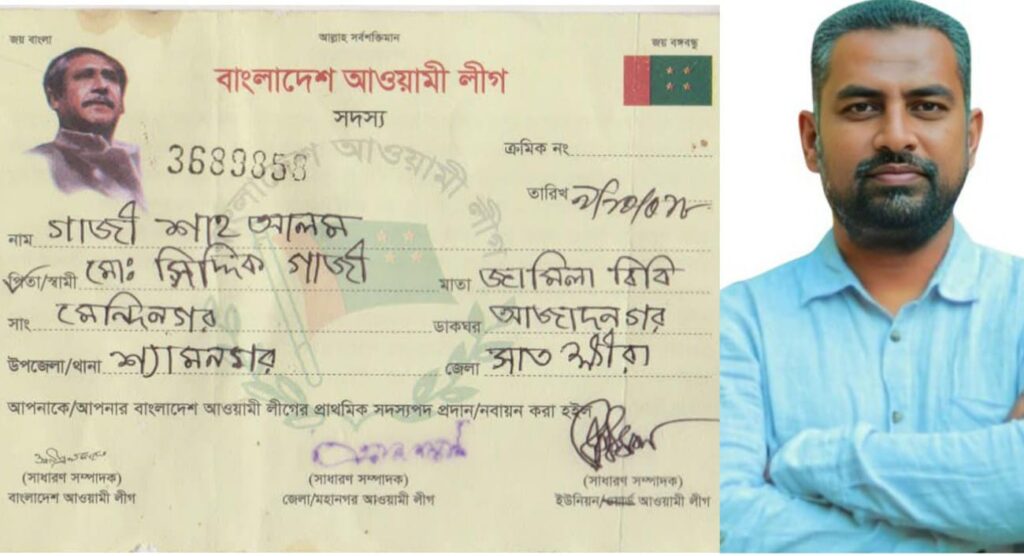 জয় বাংলা
আল্লাহ সর্বশক্তিমান
জয় বঙ্গবন্ধু
বাংলাদেশ আওয়ামী লীগ
সদস্য
ক্রমিক নং
তারিখ
নাম গাজী শাহ আলম
পিতা/স্বামী মোঃ সিদ্দিক গাজী মাতা জামিলা বিবি
সাং মেন্দিনগর ডাকঘর আজাদনগর
উপজেলা/থানা শ্যামনগর জেলা সাতক্ষীরা
আপনাকে/আপনার বাংলাদেশ আওয়ামী লীগের প্রাথমিক সদস্যপদ প্রদান/নবায়ন করা হইল
(সাধারণ সম্পাদক) (সাধারণ সম্পাদক) (সাধারণ সম্পাদক)
বাংলাদেশ আওয়ামী লীগ জেলা/মহানগর আওয়ামী লীগ ইউনিয়ন/ওয়ার্ড আওয়ামী লীগ